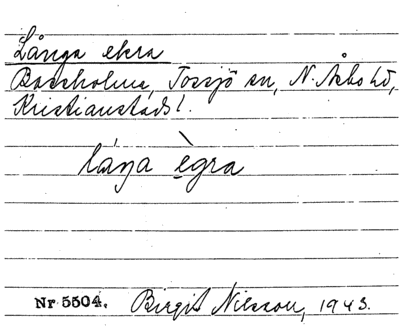 Långa ekra
Boarholma, Tossjö sn, N. Åsbo hd,
Kristianstads l.
låŋa ègra
Nr 5504. Birgit Nilsson, 1943.